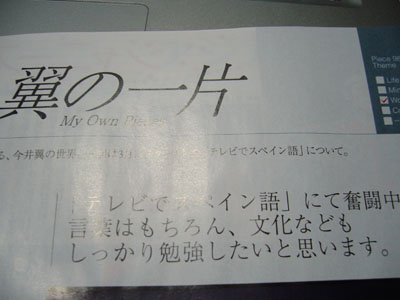 翼の一片
My Own Pie
Piece 98
Theme
Life
る、今井翼の世界
テレビでスペイン語」について。
「テレビでスペイン語」にて奮闘中
言葉はもちろん、文化なども
しっかり勉強したいと思います。